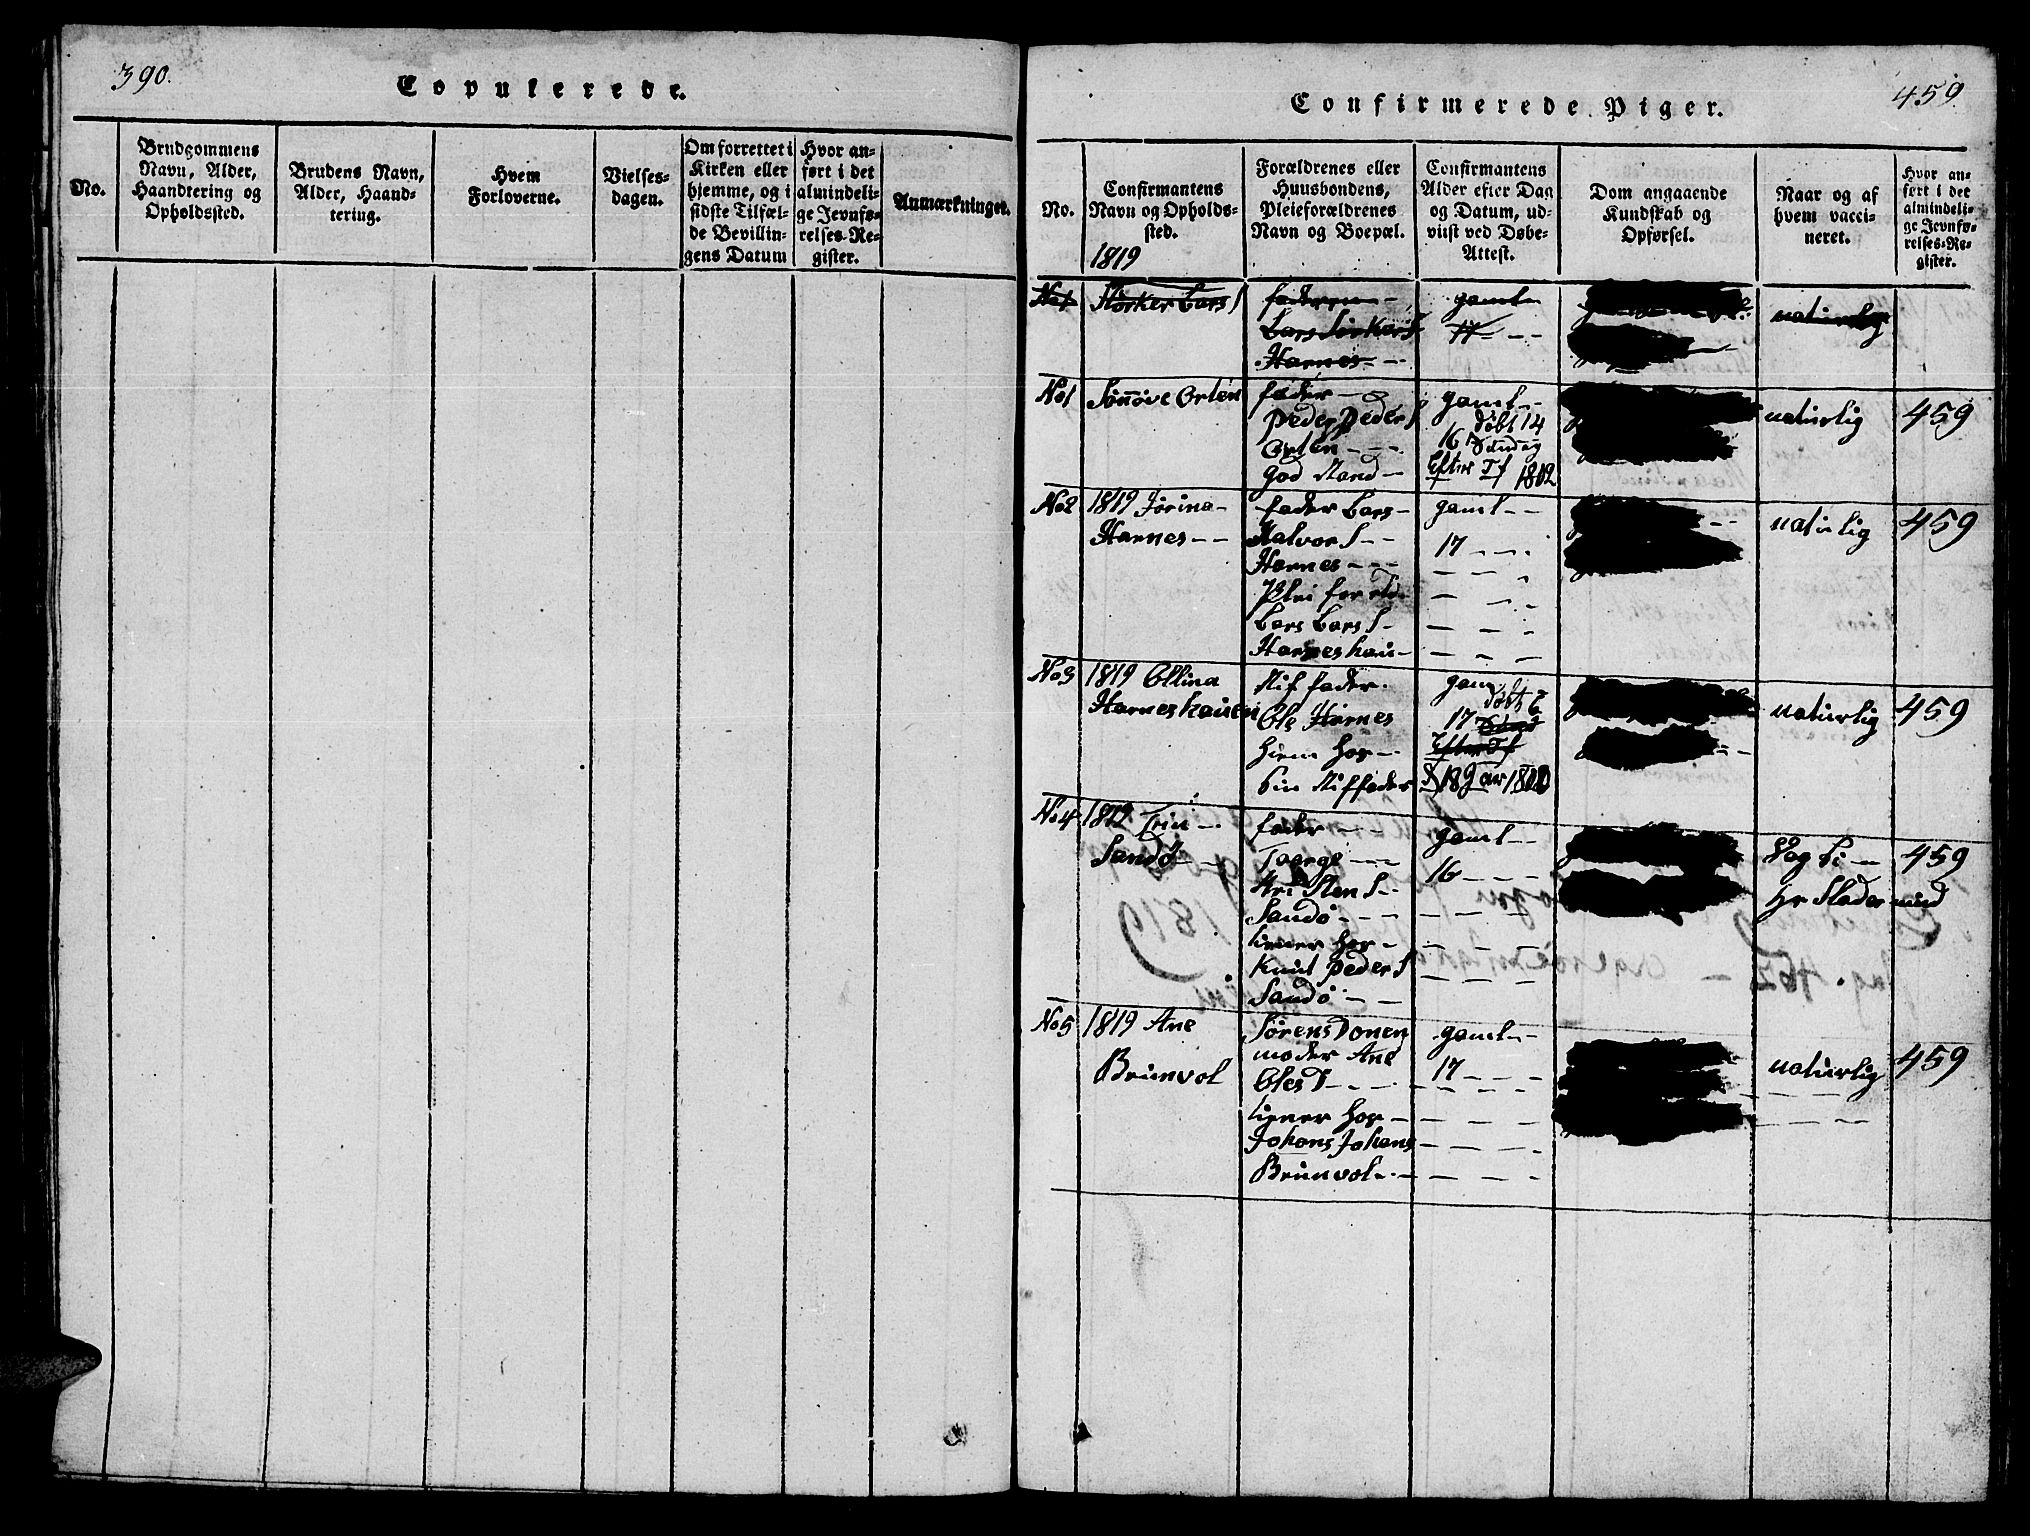 390.
Copulerede.
No.
Brudgommens
Navn, Alder,
Haandtering og
Opholdssted.
Brudens Navn,
Alder, Haand-
tering.
Hvem
Forloverne.
Vielses-
dagen.
Om forrettet i
Kirken eller
hjemme, og i
sidste Tilfæl-
de Bevillin-
gens Datum
Hvor an-
ført i det
almindeli-
ge Jevnfø-
relses-Re-
gister.
Anmærkninger.
459
Confirmerede Piger.
No.
Confirmantens
Navn og Opholds-
sted.
1819
Forældrenes eller
Huusbondens,
Pleieforældrenes
Navn og Boepæl.
Confirmantens
Alder efter Dag
og Datum, ud-
viist ved Døbe-
Attest.
Dom angaaende
Kundskab og
Opførsel.
Naar og af
hvem vacci-
neret.
Hvor an-
ført i det
almindeli-
ge Jevnfø-
relses-Re-
gister.
No1
Størker Lars S
faderen
Lars Størkers
Harnes
gaml
17
naturlig
No1
Sønnøve Orten
fader
Peder Peder S
Orten
god Mand
gaml
døbt 14
16 Søndag
Efter Tf 1802
naturlig
459
No2
1819 Jørina
Harnes
fader Lars
Halvor S
Harnes
Plei
Lars Lars S
Harneshau
gaml
17
naturlig
459
No3
1819 Ollina
Harneshauen
Stif fader
Ole Harnes
hiem hos
sin Stiffader
gam
døbt
17
Efter Tf
naturlig
459
No4
1819 Trin
Sandø
fader
Taarge
Kri Sten S
Sandø
tiener hos
Knut Peder S
Sandø
gaml
16
Vag Si
Hr Stadermind
459
No5
1819 Ane
Brunvol
Sørens Donen
moder Ane
Oles D
tiener hos
Johans Johans
Brunvol
gaml
17
naturlig
459